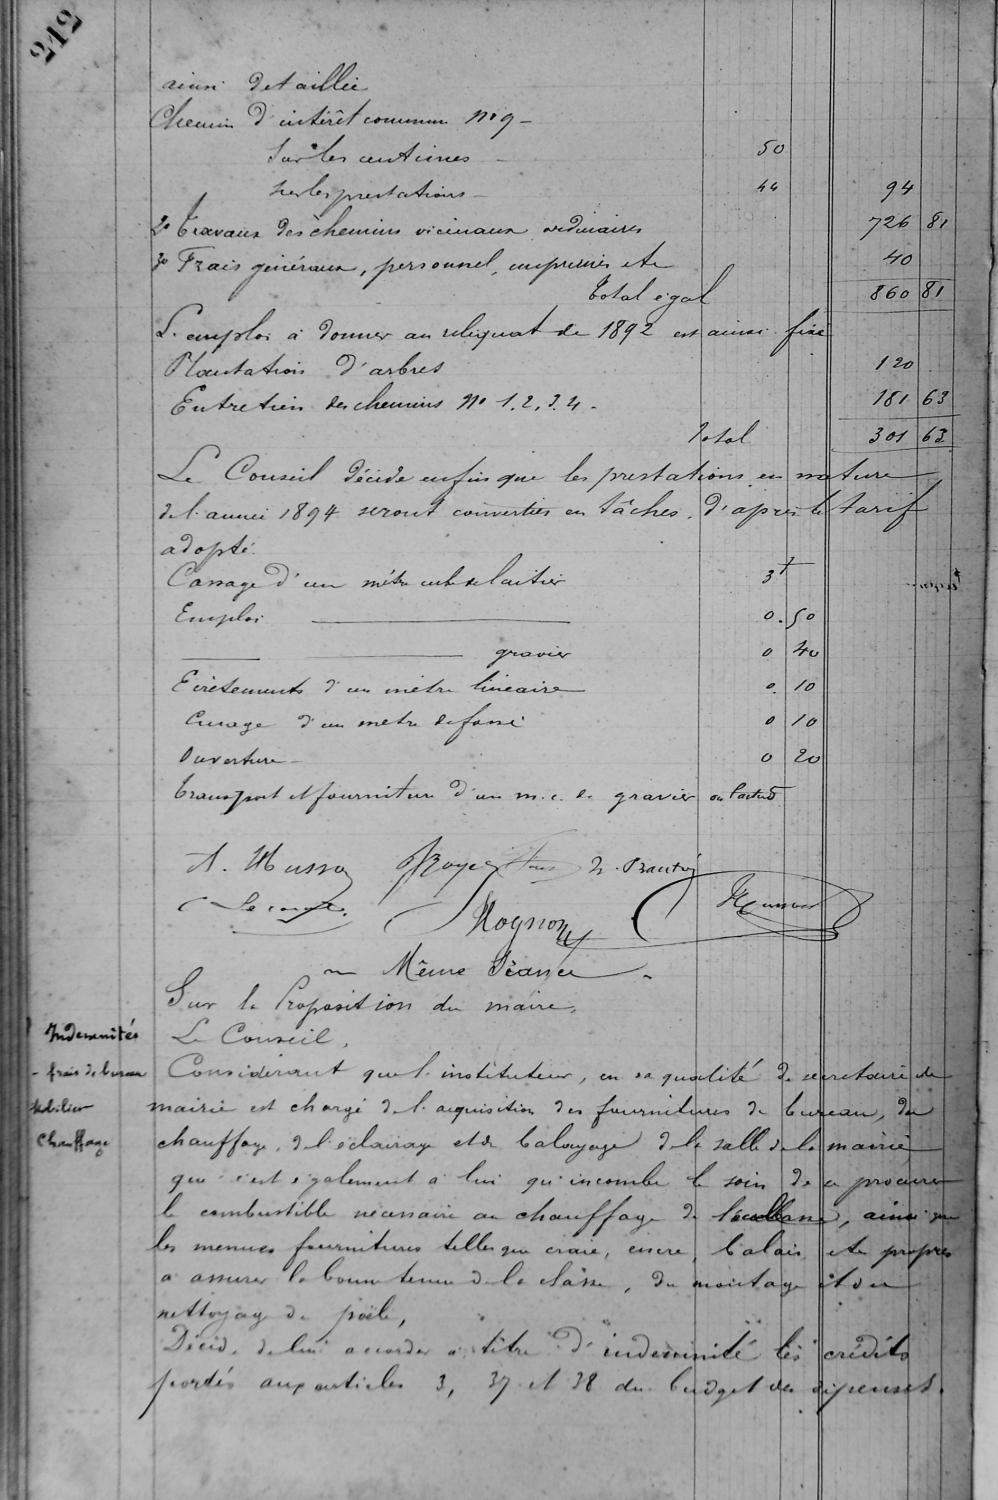 212
ainsi détaillée
Chemin d'intérêt commun No 9 -
Sur les centimes - 50
sur les prestations - 44 94
2o Travaux des chemins vicinaux ordinaires 726 81
3o Frais généraux, personnel, imprimés etc 40
Total égal 860 81
L'emploi à donner au reliquat de 1892 est ainsi fixé
Plantation d'arbres 120
Entretien des chemins No 1.2.3.4. 181 63
Total 301 63
Le Conseil décide enfin que les prestations en nature
de l'année 1894 seront converties en tâches, d'après le tarif
adopté.
Cassage d'un mètre cube de laitier 3f
Emploi 0.50
gravier 0 40
Ecrêtements d'un mètre linéaire 0.10
Curage d'un mètre de fossé 0 10
Ouverture - 0 20
Transport et fourniture d'un m.c. de gravier ou
A. Musso
Mognon
~ Même Séance ~
Sur la Proposition du maire,
Indemnités
- frais de bureau
Mobilier
Chauffage
Le Conseil,
Considérant que l'instituteur, en sa qualité de secrétaire de
mairie est chargé de l'acquisition des fournitures de bureau, du
chauffage, de l'éclairage et du balayage de la salle de la mairie
que c'est également à lui qu'incombe le soin de se procurer
le combustible nécessaire au chauffage de la classe, ainsi que
les menues fournitures telles que craie, encre, balais, etc propres
à assurer la bonne tenue de la classe, du montage et du
nettoyage du poêle,
Décide de lui accorder à titre d'indemnité les crédits
portés aux articles 3, 37 et 38 du budget des dépenses.